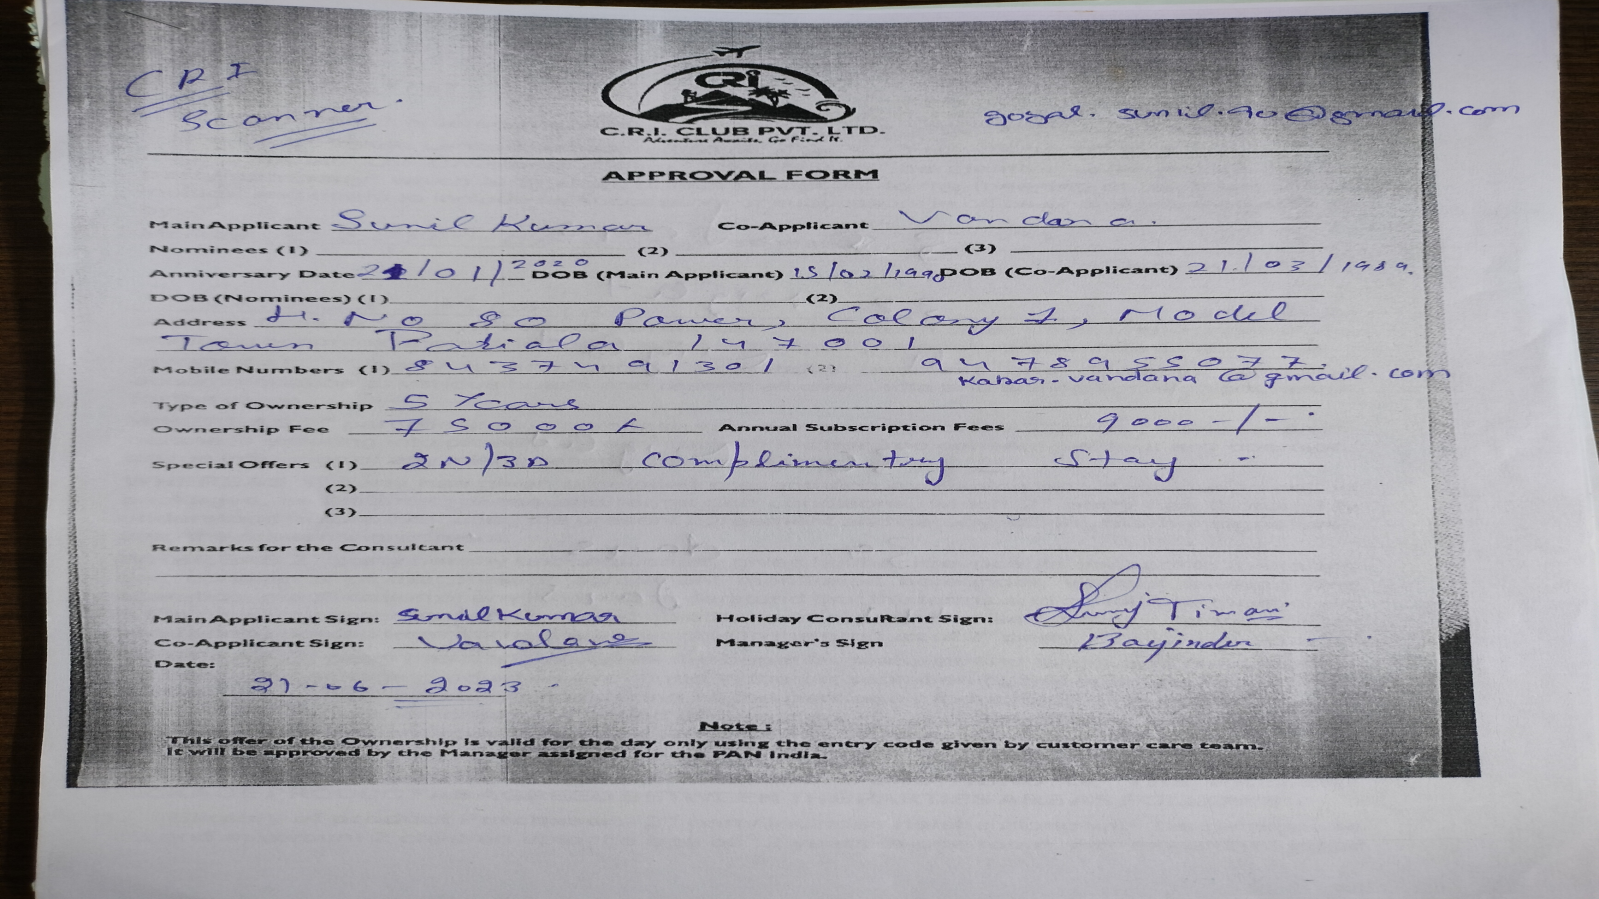 CRI
Scanner.
CRI
C.R.I. CLUB PVT. LTD.
Adventure Awaits, Go Find It.
goyal.sunil.90@gmail.com
APPROVAL FORM
Main Applicant Sunil Kumar Co-Applicant Vandana.
Nominees (1) (2) (3)
Anniversary Date 21/01/2020 DOB (Main Applicant) 15/02/1990 DOB (Co-Applicant) 21/03/1989.
DOB (Nominees) (1) (2)
Address H. No 80 Power, Colony 1, Model
Town Patiala 147001
Mobile Numbers (1) 8437491301 (2) 9478955077.
-vandana@gmail.com
Type of Ownership 5 Years
Ownership Fee 75000/ Annual Subscription Fees 9000-/-
Special Offers (1) 2N/3D Complimentry Stay -
(2)
(3)
Remarks for the Consultant
Main Applicant Sign: Sunil Kumar Holiday Consultant Sign:
Co-Applicant Sign: Manager's Sign
Date:
21-06-2023
Note :
This offer of the Ownership is valid for the day only using the entry code given by customer care team.
It will be approved by the Manager assigned for the PAN India.